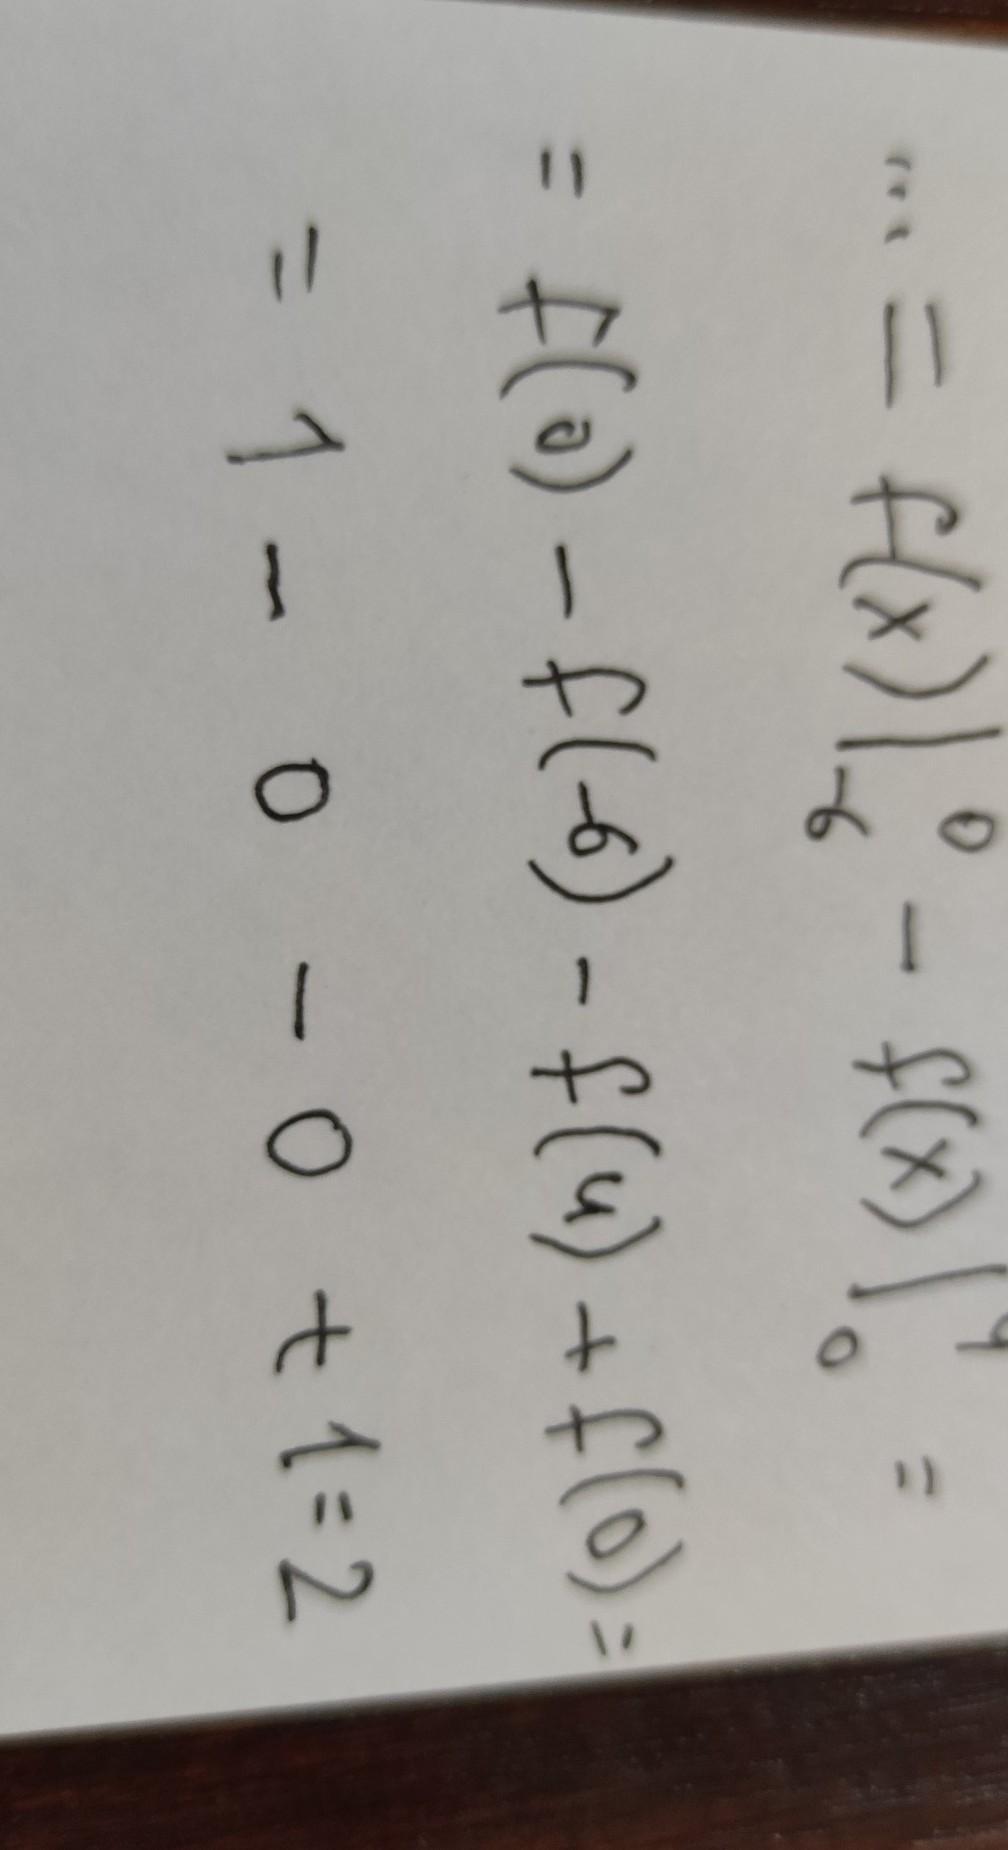 ... = f(x)|₋₆⁰ - f(x)|₀⁴ =
= f(0) - f(-6) - f(4) + f(0) =
= 1 - 0 - 0 + 1 = 2